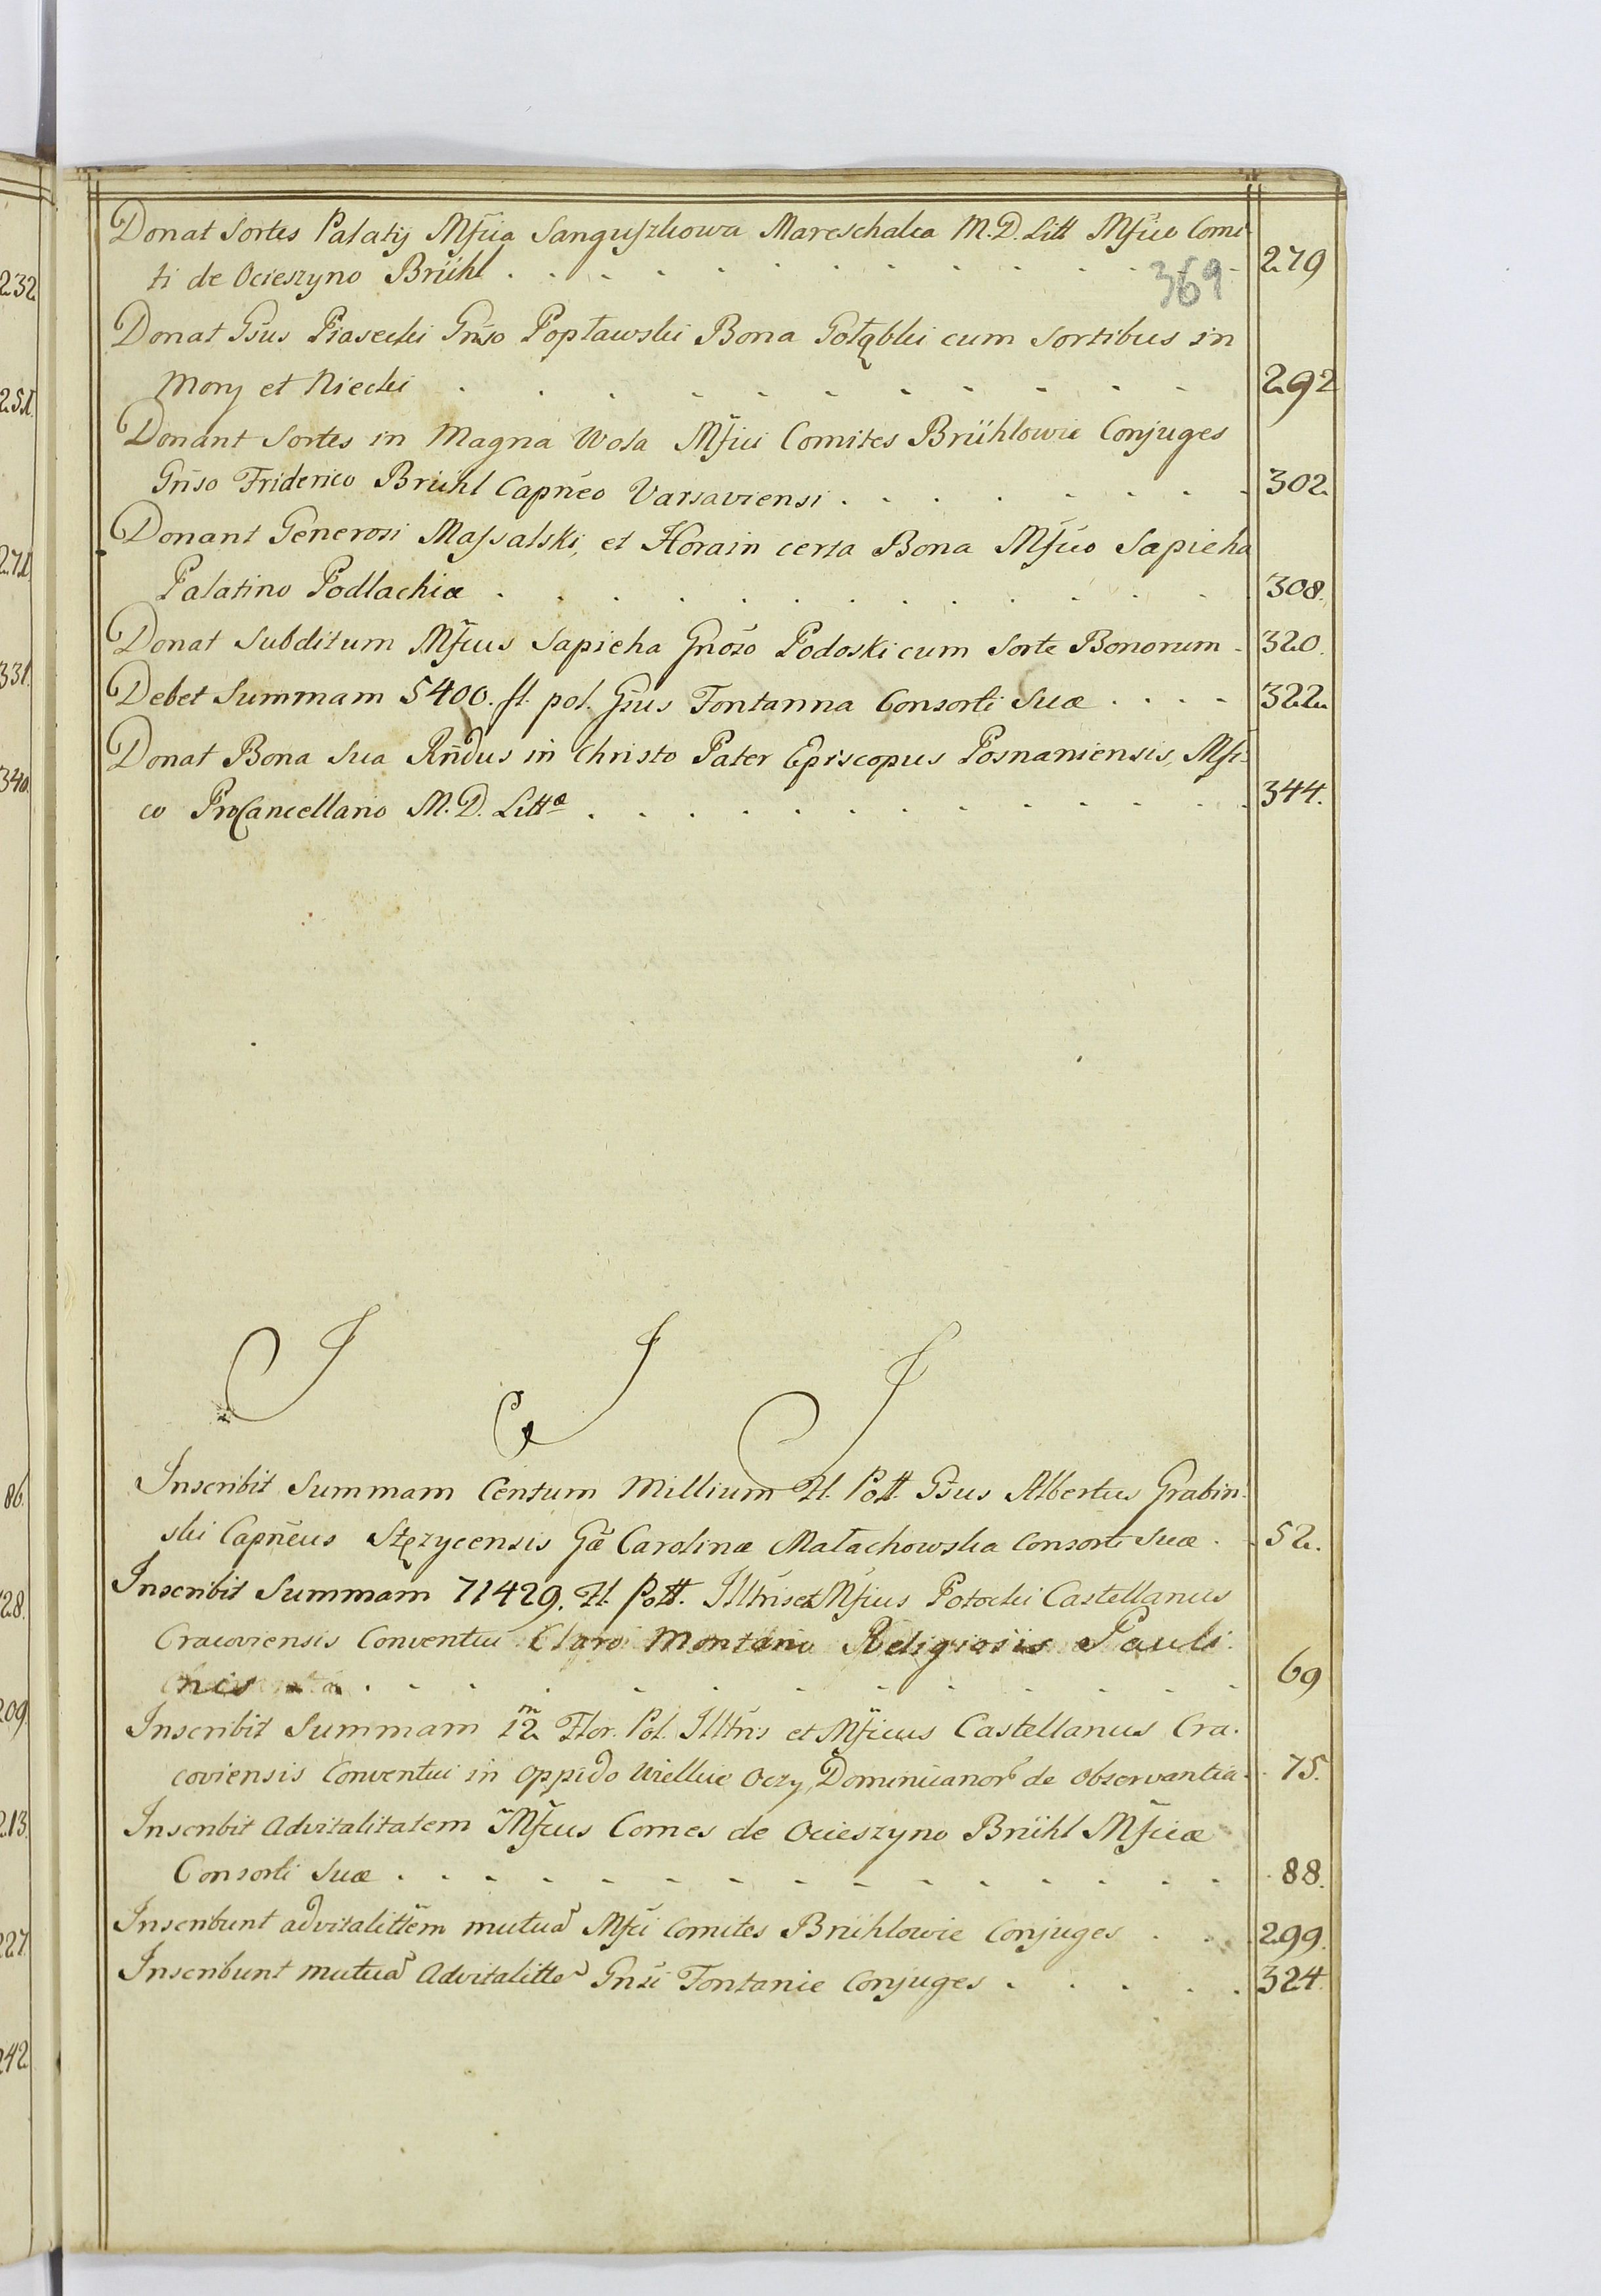 Donat Sortes Palatij Mfica Sanguszkowa Mareschalca M.D. Litt Mfico Comi
ti de Ocieszyno Brühl . . . . . . . . . . . . 279
369
Donat Gsus Piasecki Gnso Popławski Bona Gołąbki cum Sortibus in
Mory et Niecki . . . . . . . . . . 292
Donant Sortes in Magna Wola Mfici Comites Brühlowie Conjuges
Gnso Friderico Brühl Capneo Varsaviensi . . . . . . . . 302.
Donant Generosi Massalski, et Horain certa Bona Mfico Sapieha
Palatino Podlachiæ . . . . . . . . . . . . 308.
Donat Subditum Mficus Sapieha Gnoso Podoski cum Sorte Bonorum - 320.
Debet Summam 5400. fl. pol. Gsus Fontanna Consorti Suæ . . . . 322.
Donat Bona Sua Rndus in Christo Pater Episcopus Posnaniensis, Mfi-
co ProCancellario M. D. Littæ . . . . . . . . . . . . . 344.
J J J
Inscribit Summam Centum Millium Fl. Poll. Gsus Albertus Grabin-
ski Capneus Stężycensis Gæ Carolinæ Małachowska Consorti Suæ . . 52.
Inscribit Summam 71429. Fl. Poll. Illtris et Mficus Potocki Castellanus
Cracoviensis Conventui Claro Montano Religiosis Pauli-
nis . . . . . . . . . . . . . 69
Inscribit Summam 12 m Flor. Pol. Illtris et Mficus Castellanus Cra-
coviensis Conventui in Oppido Wielkie Oczy, Dominicanor de Observantia . 75.
Inscribit Advitalitatem Mficus Comes de Ocieszyno Brühl Mficæ
Consorti Suæ . . . . . . . . . . . . . . . 88.
Inscribunt advitalittem mutua Mfci Comites Brühlowie Conjuges . . . 299.
Inscribunt mutua Advitalitte Gnsi Fontanie Conjuges . . . . . 324.
232
251.
271.
331.
340.
86.
128.
209.
213.
227.
242.